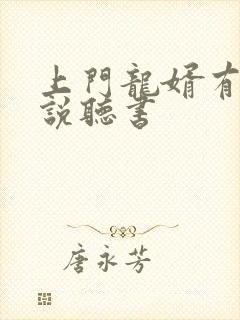 上門龍婿有
説聽書
唐永芳